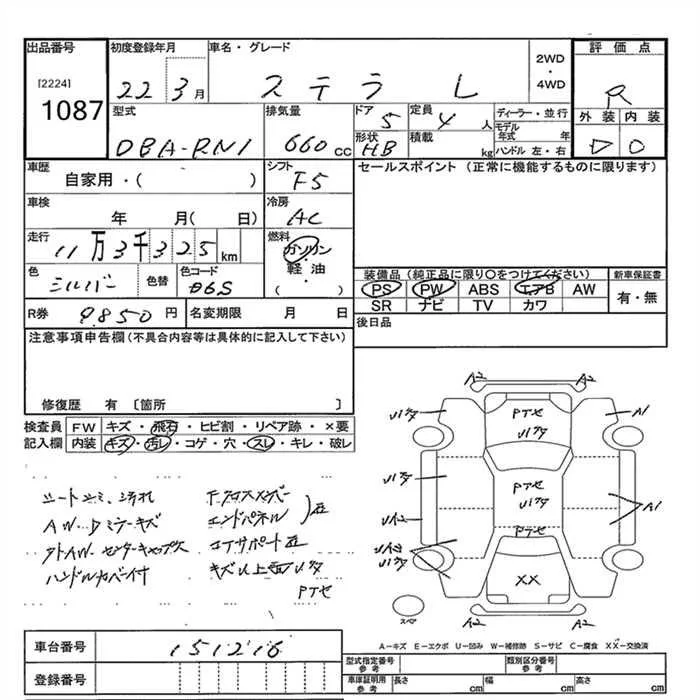 出品番号
[2224]
1087
初度登録年月
22 3月
車名・グレード
ステラ L
2WD
・
4WD
評価点
R
外装 内装
D D
型式
DBA-RN1
排気量
660 cc
ドア
5
定員
4 人
形状
HB
積載
kg
ディーラー・並行
モデル年式 年
ハンドル 左・右
車歴
自家用・( )
シフト
F5
セールスポイント (正常に機能するものに限ります)
車検
年 月( 日)
冷房
AC
走行
11万3千325 km
燃料
ガソリン
・
軽油
( )
色
シルバー
色替
色コード
D6S
装備品 (純正品に限り○をつけてください)
PS PW ABS エアB AW
SR ナビ TV カワ
新車保証書
有・無
R券 9850 円
名変期限 月 日
後日品
注意事項申告欄 (不具合内容等は具体的に記入して下さい)
修復歴 有〔箇所 〕
検査員記入欄
FW キズ・飛石・ヒビ割・リペア跡・×要
内装 キズ・汚レ・コゲ・穴・スレ・キレ・破レ
シートシミ、汚れ
AW・Dミラーキズ
ハンドルカバー付
Fクロスメンバー
エンドパネル
コアサポート歪
キズ以上
PTセ
A2 A2
U1フタ
PTセ
U1フタ
A1
U1フタ
PTセ
U1フタ
A1
UA2
PTセ
UA2
U1フタ
XX
A2 A2
スペア
A-キズ E-エクボ U-凹み W-補修跡 S-サビ C-腐食 XX-交換済
車台番号
151216
登録番号
型式指定番号
参考
類別区分番号
参考
車庫証明用
参考
長さ cm
幅 cm
高さ cm